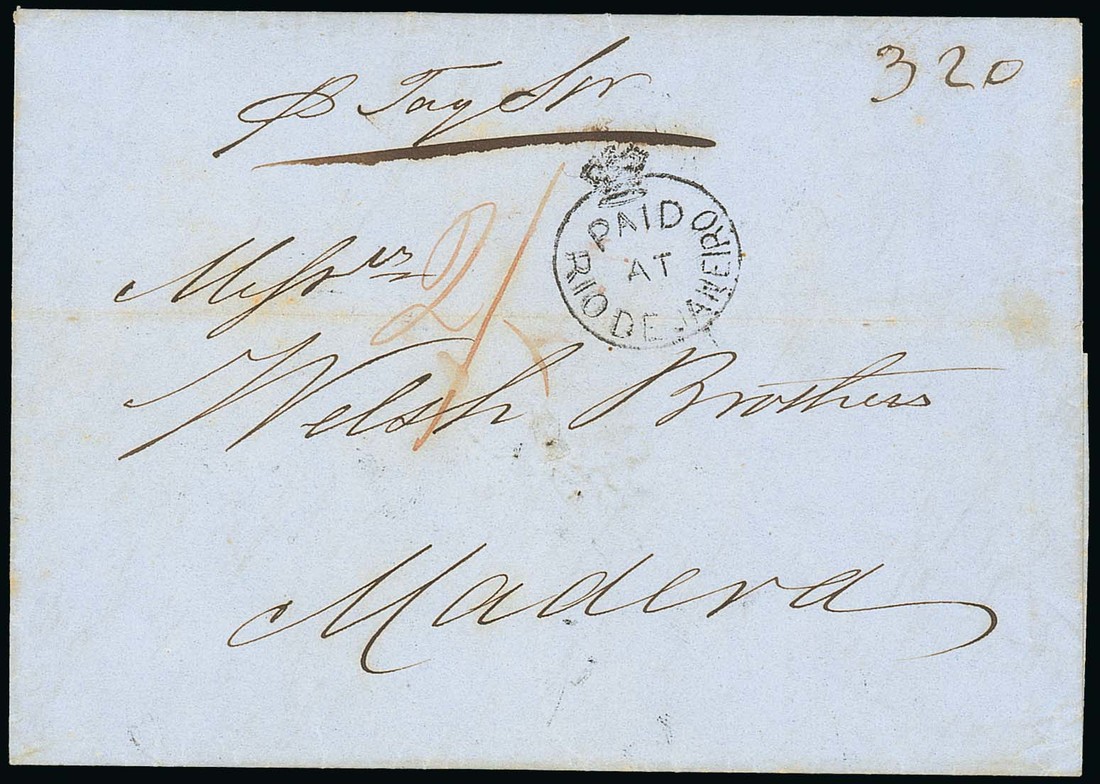 320
p Tay Str
PAID
AT
RIO DE JANEIRO
2/
Messrs
Welsh Brothers
Madera